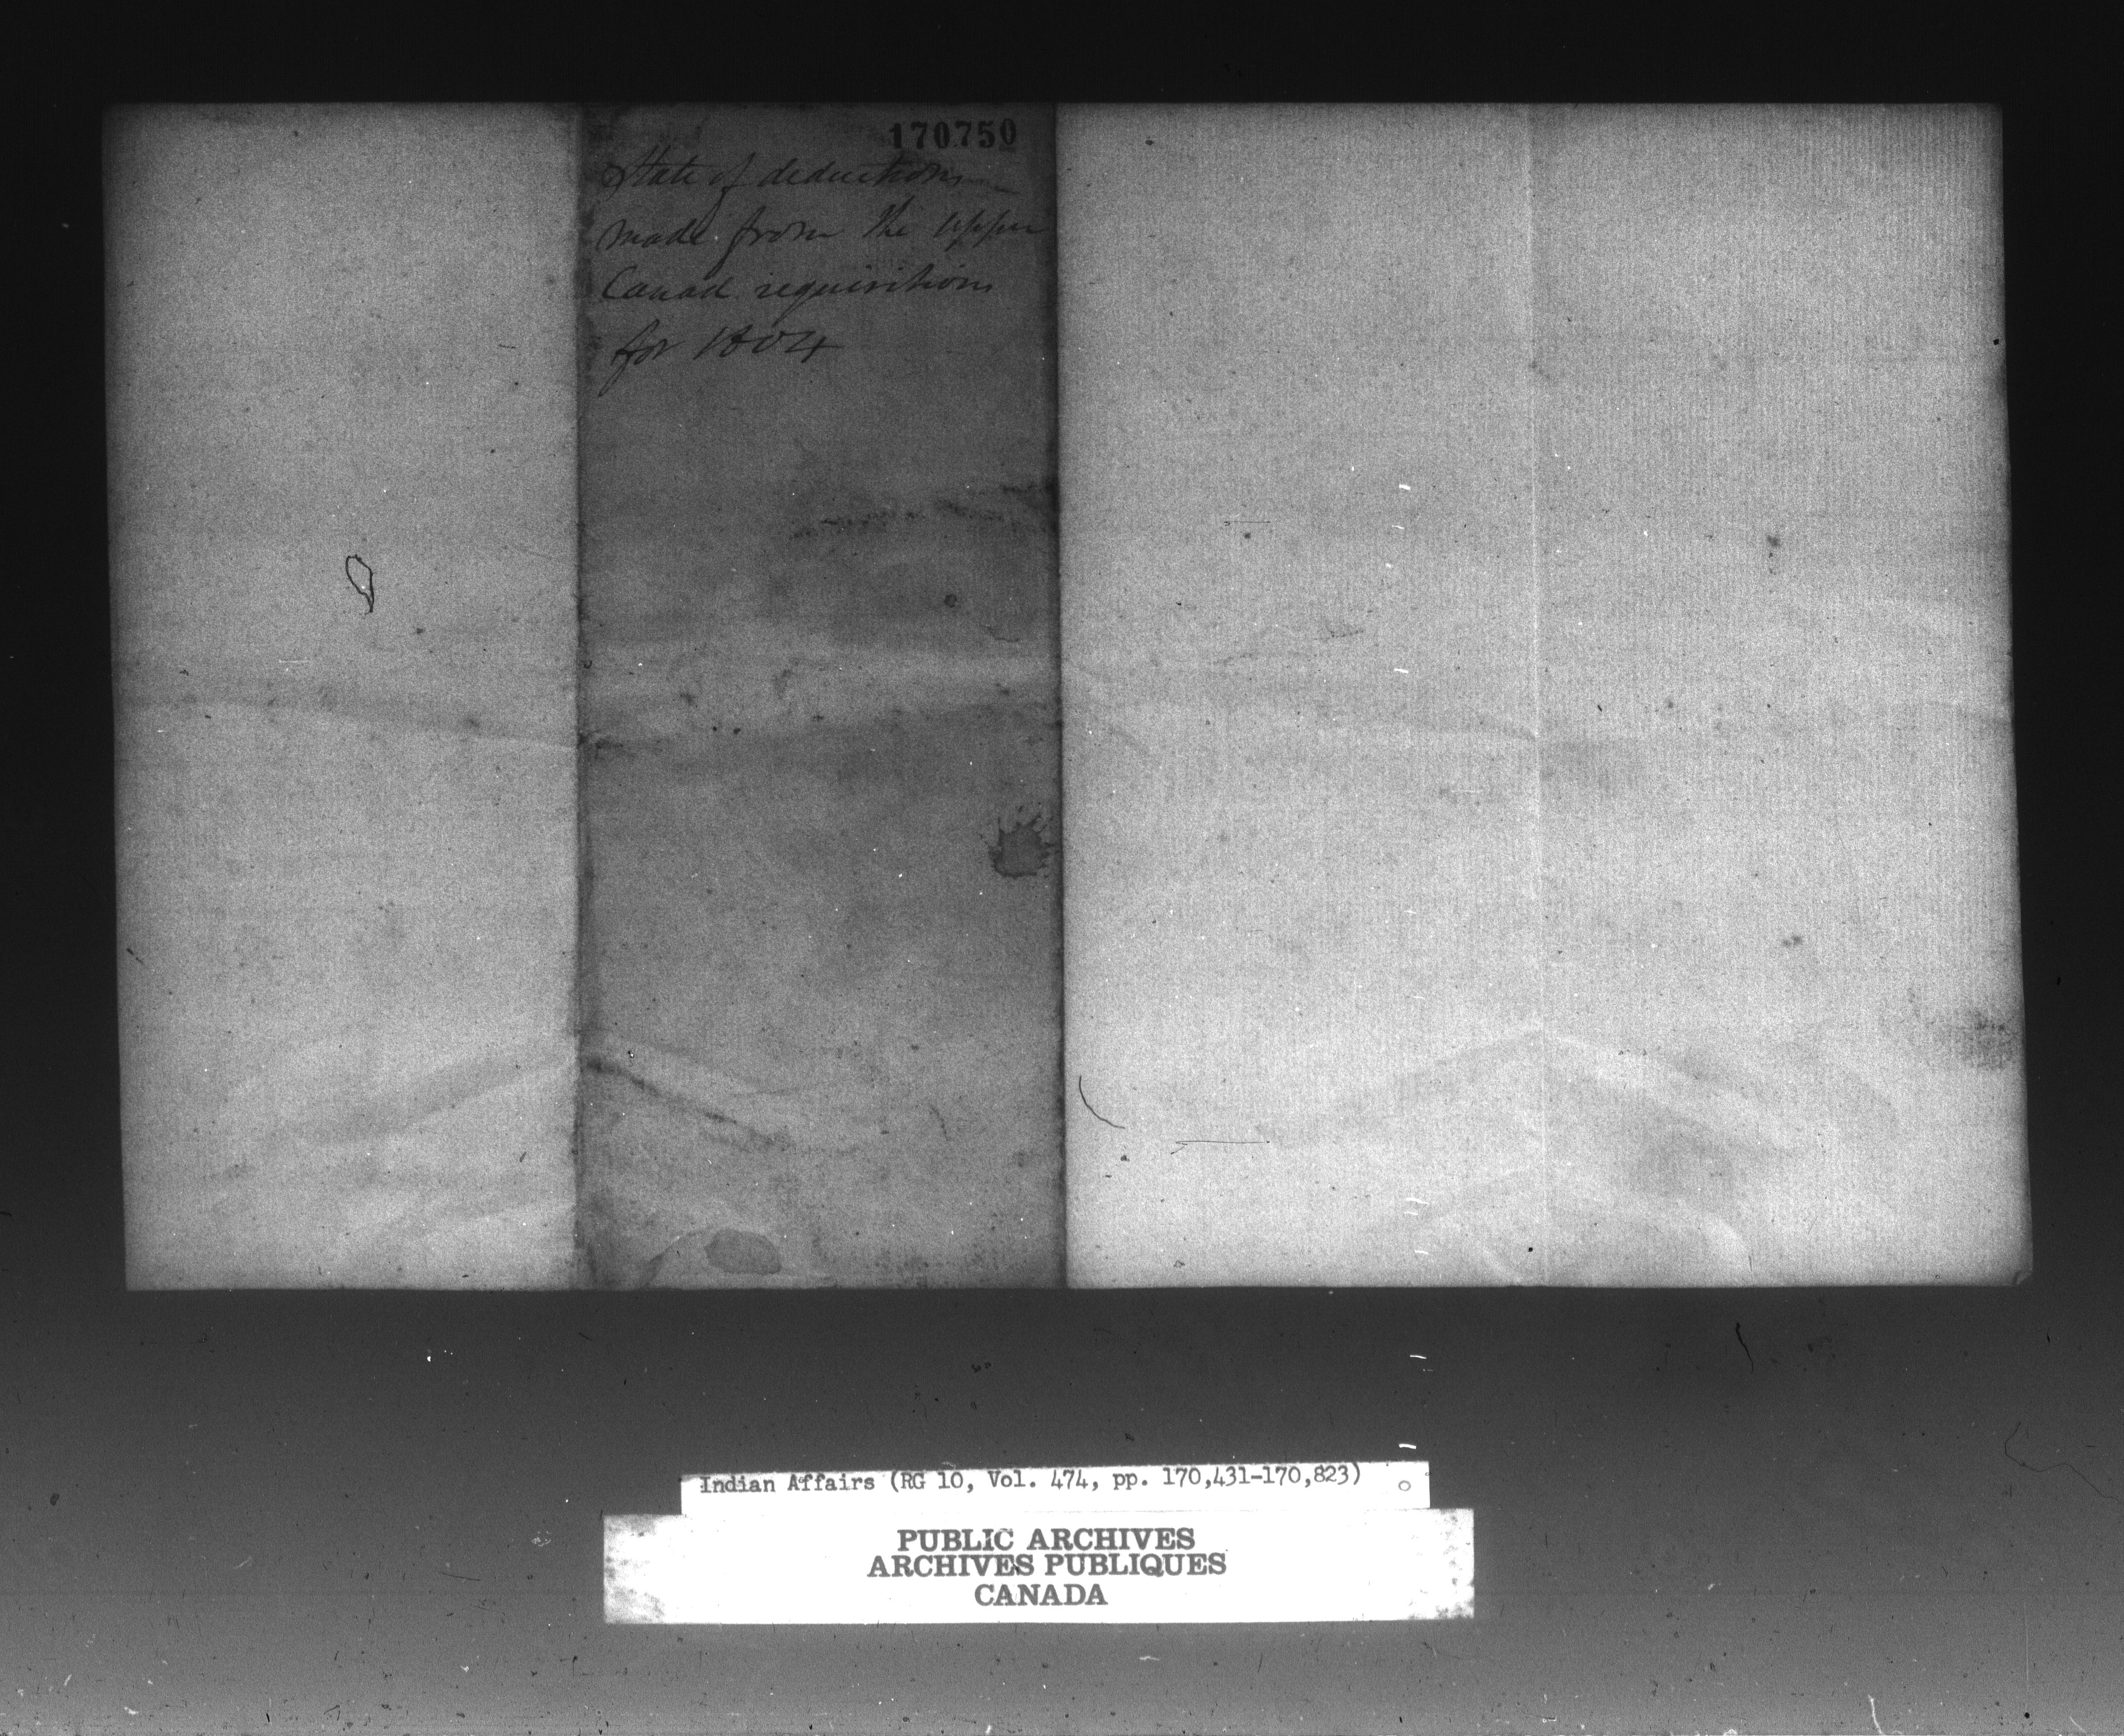 170750
State of deductions
made from the upper
Canad requisitions
for 1804
Indian Affairs (RG 10, Vol. 474, pp. 170,431-170,823)
PUBLIC ARCHIVES
ARCHIVES PUBLIQUES
CANADA